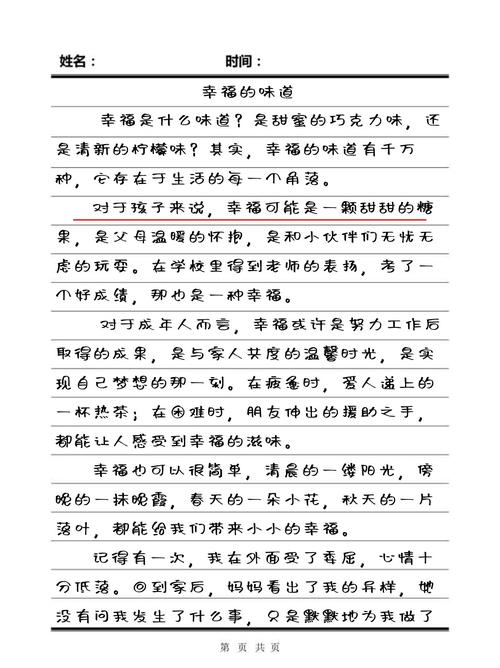 姓名： 时间：
幸福的味道
幸福是什么味道？是甜蜜的巧克力味，还
是清新的柠檬味？其实，幸福的味道有千万
种，它存在于生活的每一个角落。
对于孩子来说，幸福可能是一颗甜甜的糖
果，是父母温暖的怀抱，是和小伙伴们无忧无
虑的玩耍。在学校里得到老师的表扬，考了一
个好成绩，那也是一种幸福。
对于成年人而言，幸福或许是努力工作后
取得的成果，是与家人共度的温馨时光，是实
现自己梦想的那一刻。在疲惫时，爱人递上的
一杯热茶；在困难时，朋友伸出的援助之手，
都能让人感受到幸福的滋味。
幸福也可以很简单，清晨的一缕阳光，傍
晚的一抹晚霞，春天的一朵小花，秋天的一片
落叶，都能给我们带来小小的幸福。
记得有一次，我在外面受了委屈，心情十
分低落。回到家后，妈妈看出了我的异样，她
没有问我发生了什么事，只是默默地为我做了
第 页 共 页